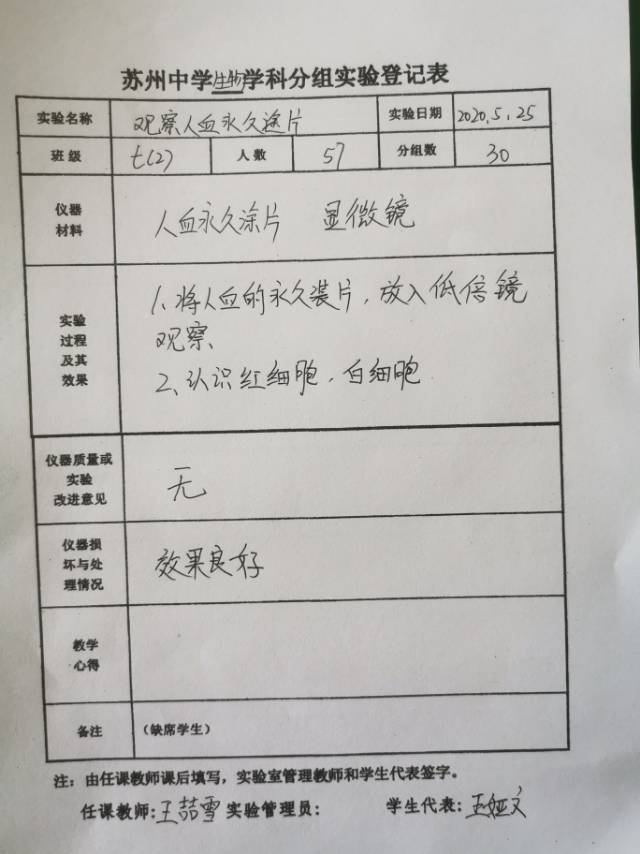 苏州中学生物学科分组实验登记表
实验名称 观察人血永久涂片 实验日期 2020.5.25
班级 七(2) 人数 57 分组数 30
仪器
材料
人血永久涂片 显微镜
实验
过程
及其
效果
1、将人血的永久装片,放入低倍镜
观察、
2、认识红细胞、白细胞
仪器质量或
实验
改进意见
无
仪器损
坏与处
理情况
效果良好
教学
心得
备注 (缺席学生)
注:由任课教师课后填写,实验室管理教师和学生代表签字。
任课教师:王喆雪 实验管理员: 学生代表:王娅文